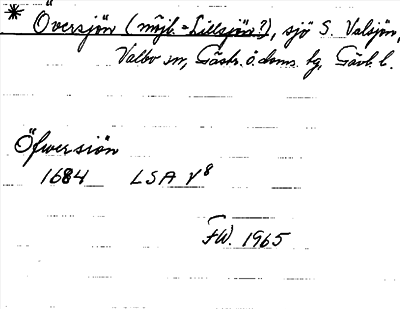 * Översjön (möjl. = Lillsjön?), sjö S. Valsjön,
Valbo sn, Gästr. ö. doms. hg, Gävl. l.
Öfwersiön
1684 LSA V8
FW. 1965